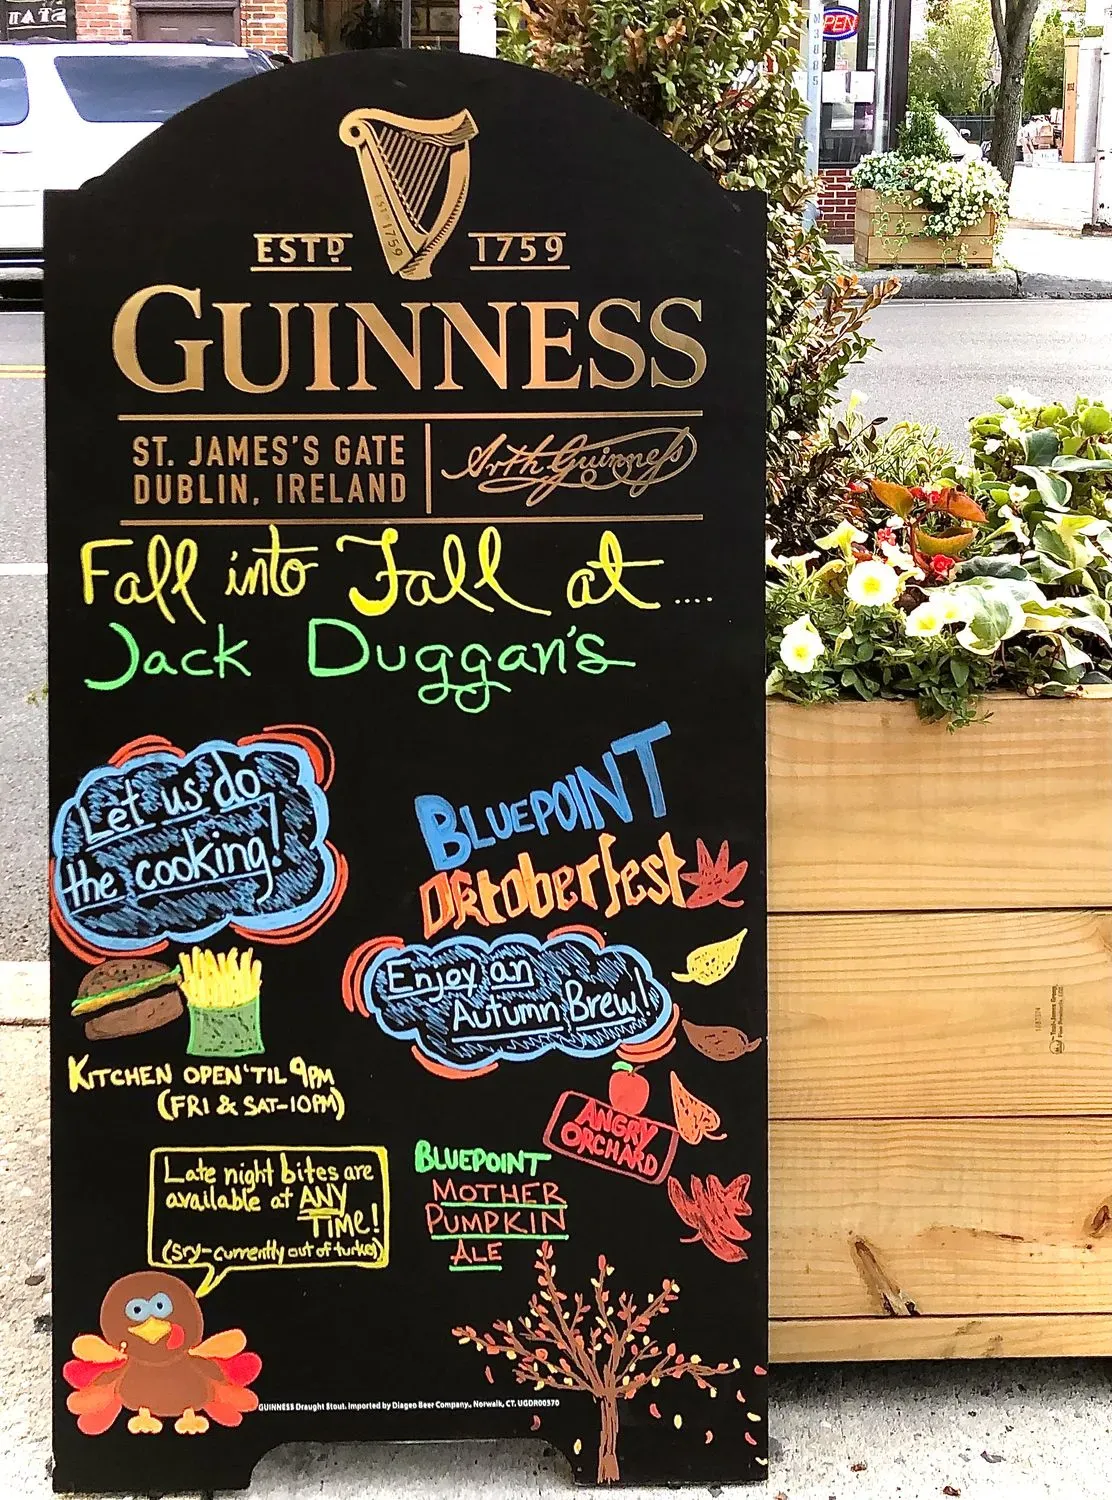 OPEN
EST 1759
ESTD 1759
GUINNESS
ST. JAMES'S GATE
DUBLIN, IRELAND
Arth Guinness
Fall into Fall at ....
Jack Duggan's
Let us do
the cooking!
BLUEPOINT
Oktoberfest
Enjoy an
Autumn Brew!
KITCHEN OPEN 'TIL 9PM
(FRI & SAT-10PM)
ANGRY
ORCHARD
Late night bites are
available at ANY
TIME!
(sry-currently out of turkey)
BLUEPOINT
MOTHER
PUMPKIN
ALE
GUINNESS Draught Stout. Imported by Diageo Beer Company., Norwalk, CT. UGDR00370